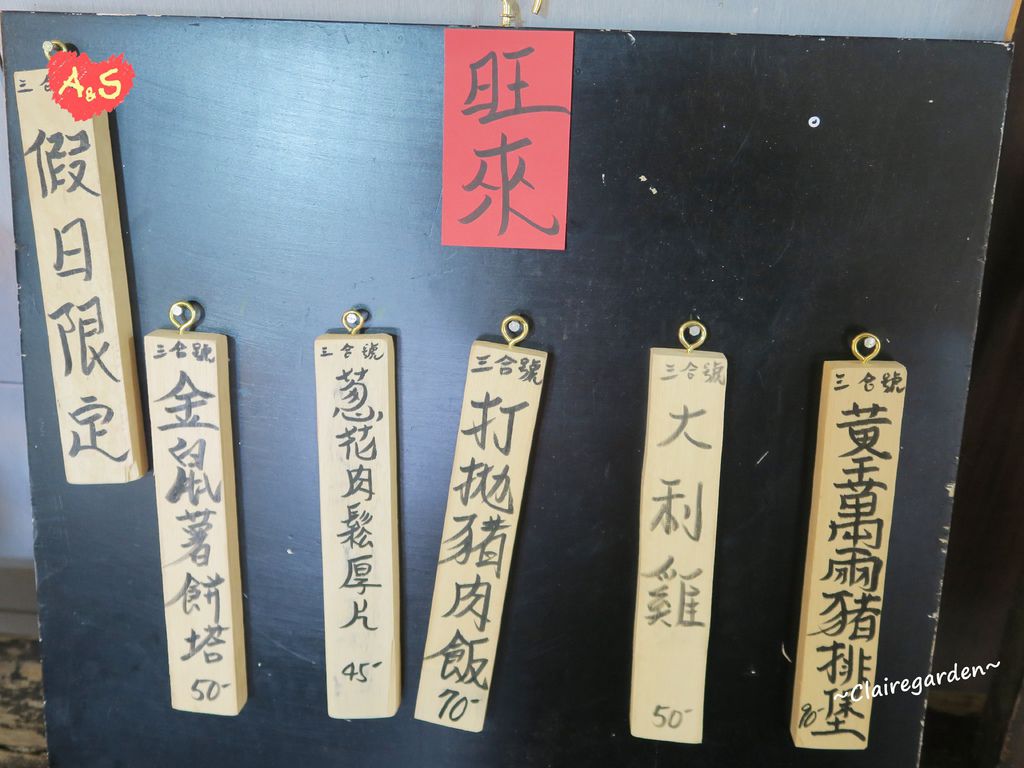 A&S
旺來
三合
假日限定
三合號
金鼠薯餅塔
50-
三合號
蔥花肉鬆厚片
45-
三合號
打拋豬肉飯
70-
三合號
大利雞
50-
三合號
黃金萬兩豬排堡
90-
~Clairegarden~